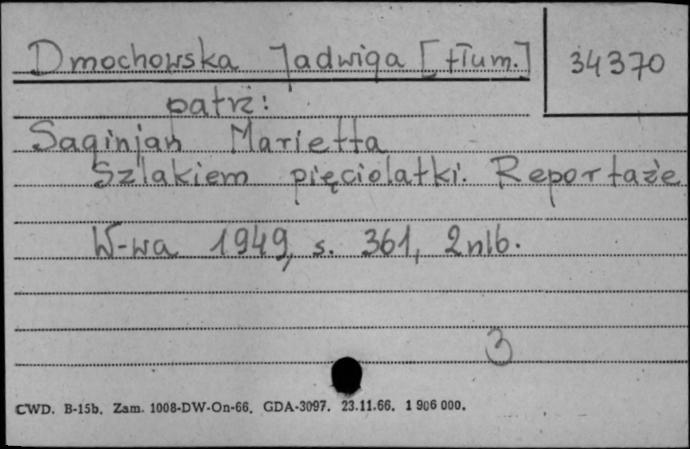 Dmochowska Jadwiga [tłum.]
34370
patrz:
Saginjan Marietta
Szlakiem pięciolatki. Reportaże
W-wa 1949, s. 361, 2nlb.
3
CWD. B-15b. Zam. 1008-DW-On-66. GDA-3097. 23.11.66. 1 906 000.